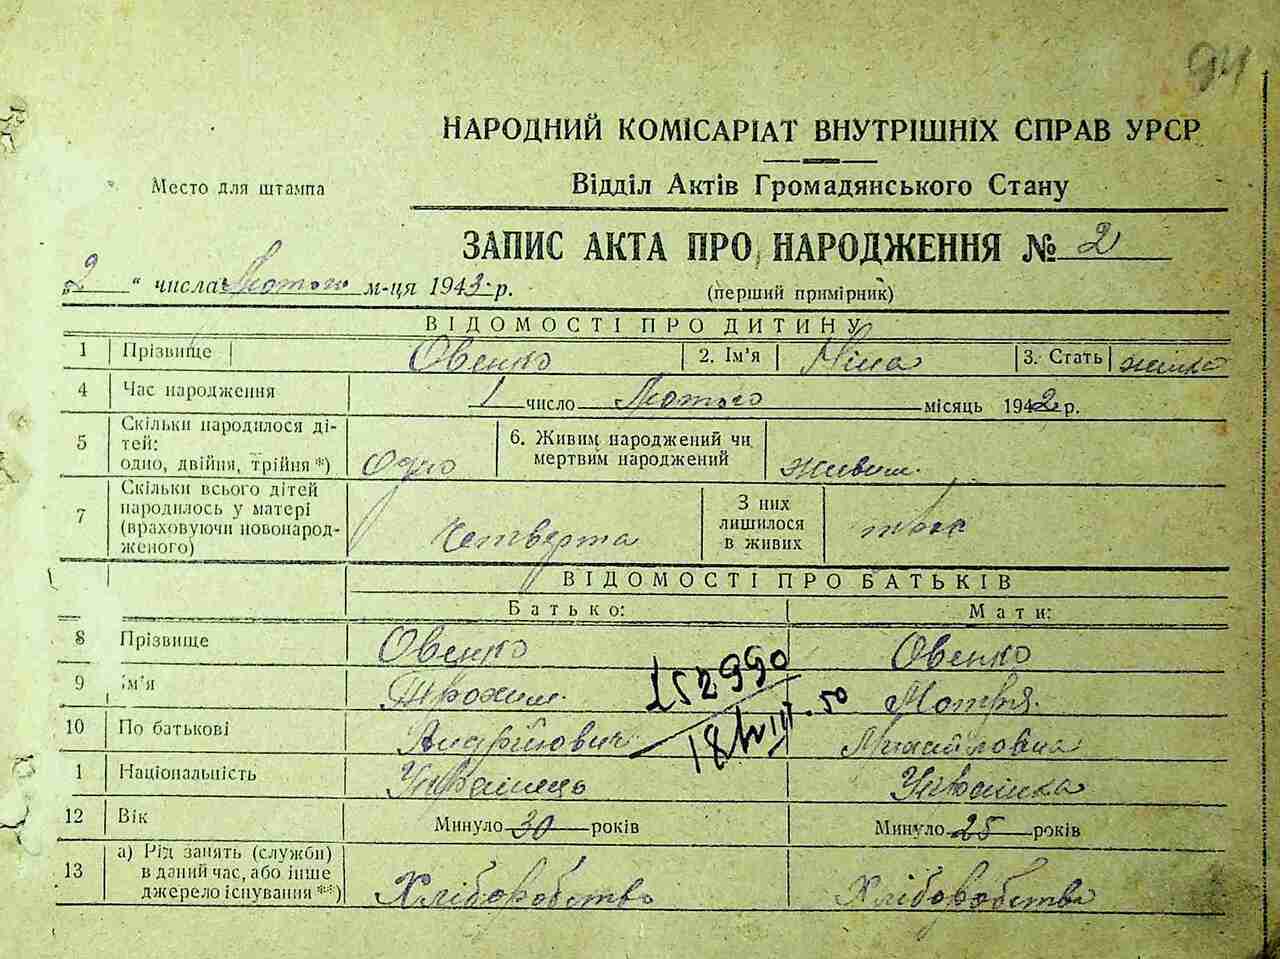 94
НАРОДНИЙ КОМІСАРІАТ ВНУТРІШНІХ СПРАВ УРСР
Место для штампа
Відділ Актів Громадянського Стану
ЗАПИС АКТА ПРО НАРОДЖЕННЯ № 2
„2“ числа Лютого м-ця 1943 р.
(перший примірник)
ВІДОМОСТІ ПРО ДИТИНУ
1 Прізвище Овенко 2. Ім'я Ніна 3. Стать жінка
4 Час народження 1 число Лютого місяць 1942 р.
5 Скільки народилося ді-
тей:
одно, двійня, трійня *) Одно
6. Живим народжений чи
мертвим народжений живим.
7 Скільки всього дітей
народилось у матері
(враховуючи новонарод-
женого) Четверта
З них
лишилося
в живих троє
ВІДОМОСТІ ПРО БАТЬКІВ
Батько: Мати:
8 Прізвище Овенко Овенко
9 ім'я Трохим. Мотря.
10 По батькові Андрійович Михайловна
1 Національність Українець Українка
12 Вік Минуло 30 років Минуло 25 років
13 а) Рід занять (служби)
в даний час, або інше
джерело існування **) Хліборобство Хліборобство
152990
18/VIII-50